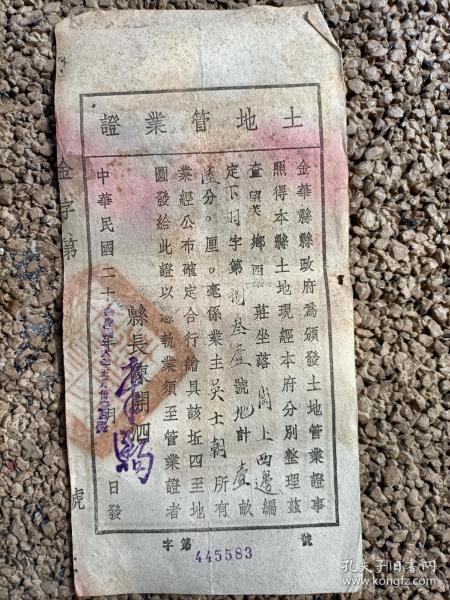 土地管業證
金華縣縣政府為頒發土地管業證事
照得本縣土地現經本府分別整理茲
查 鄉 莊坐落 上西邊編
定下羽字第捌叁壹號地計壹畝
分。厘。毫係業主吳士朝所有
業經公布確定合行繪具該坵四至地
圖發給此證以憑執業須至管業證者
縣長 開泗
中華民國二十 年 月 日發
金字第 號
字第445583號
孔夫子旧书网
kongfz.com